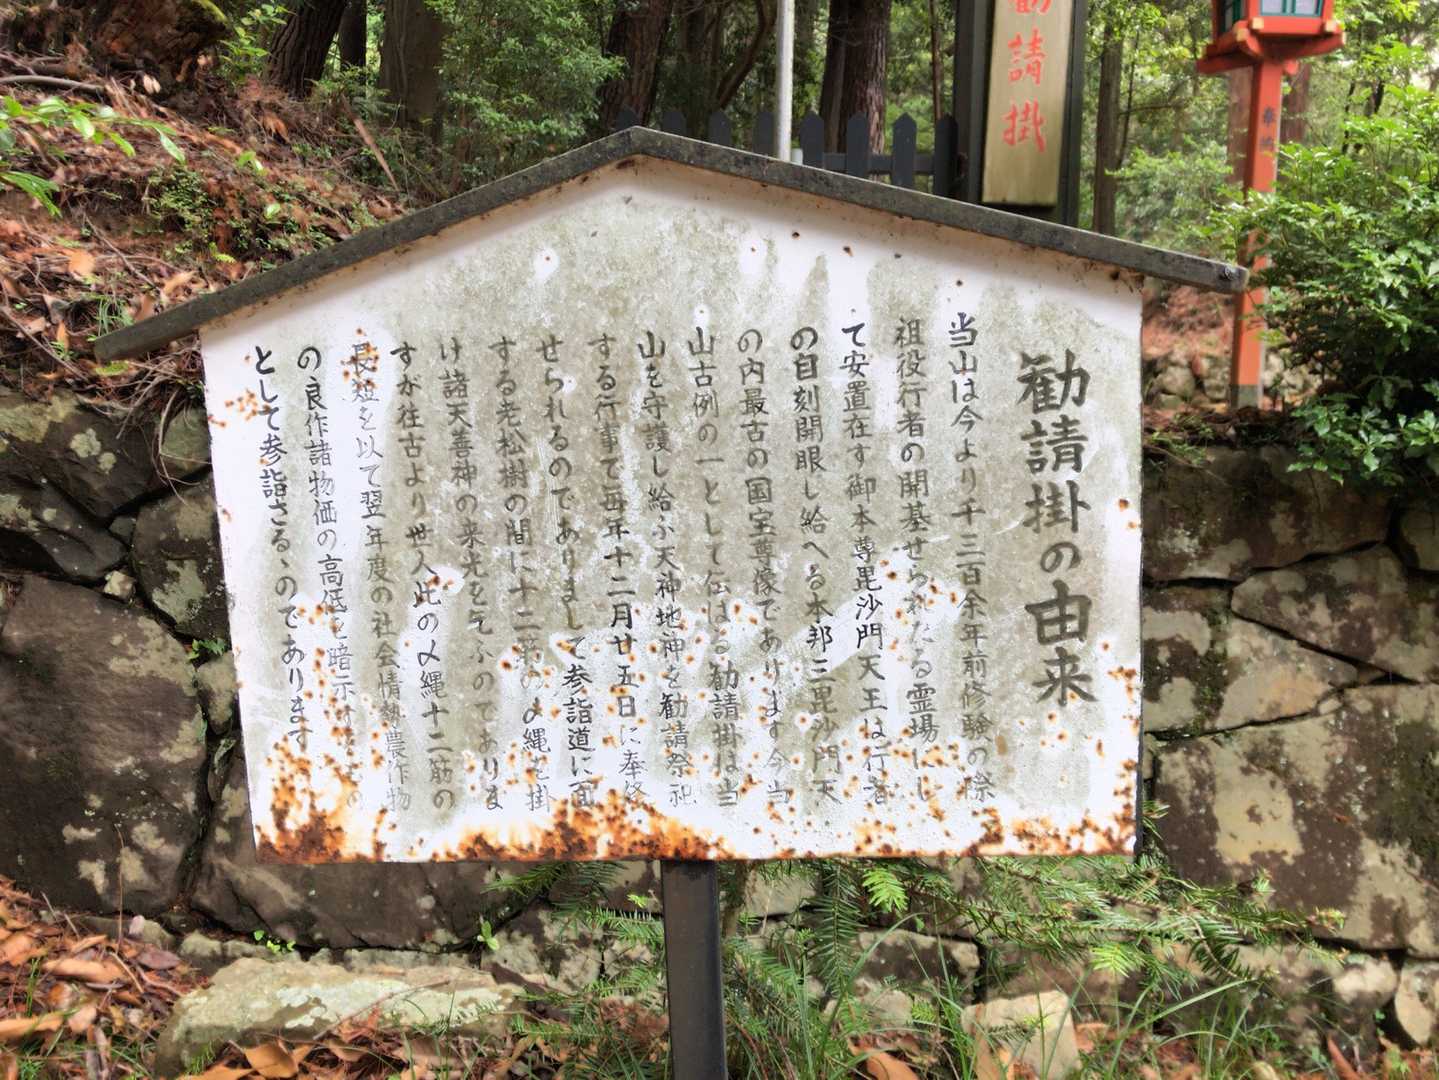 勧請掛
奉納
勧請掛の由来
当山は今より千三百余年前修験の際
祖役行者の開基せられたる霊場にし
て安置在す御本尊毘沙門天王は行者
の自刻開眼し給へる本邦三毘沙門天
の内最古の国宝尊像であります今当
山古例の一として伝はる勧請掛は当
山を守護し給ふ天神地神を勧請祭祀
する行事で毎年十二月廿五日に奉修
せられるのでありまして参詣道に面
する老松樹の間に十二筋の〆縄を掛
け諸天善神の来光を乞ふのでありま
すが往古より世人此の〆縄十二筋の
長短を以て翌年度の社会情勢農作物
の良作諸物価の高低を暗示するもの
として参詣さるゝのであります